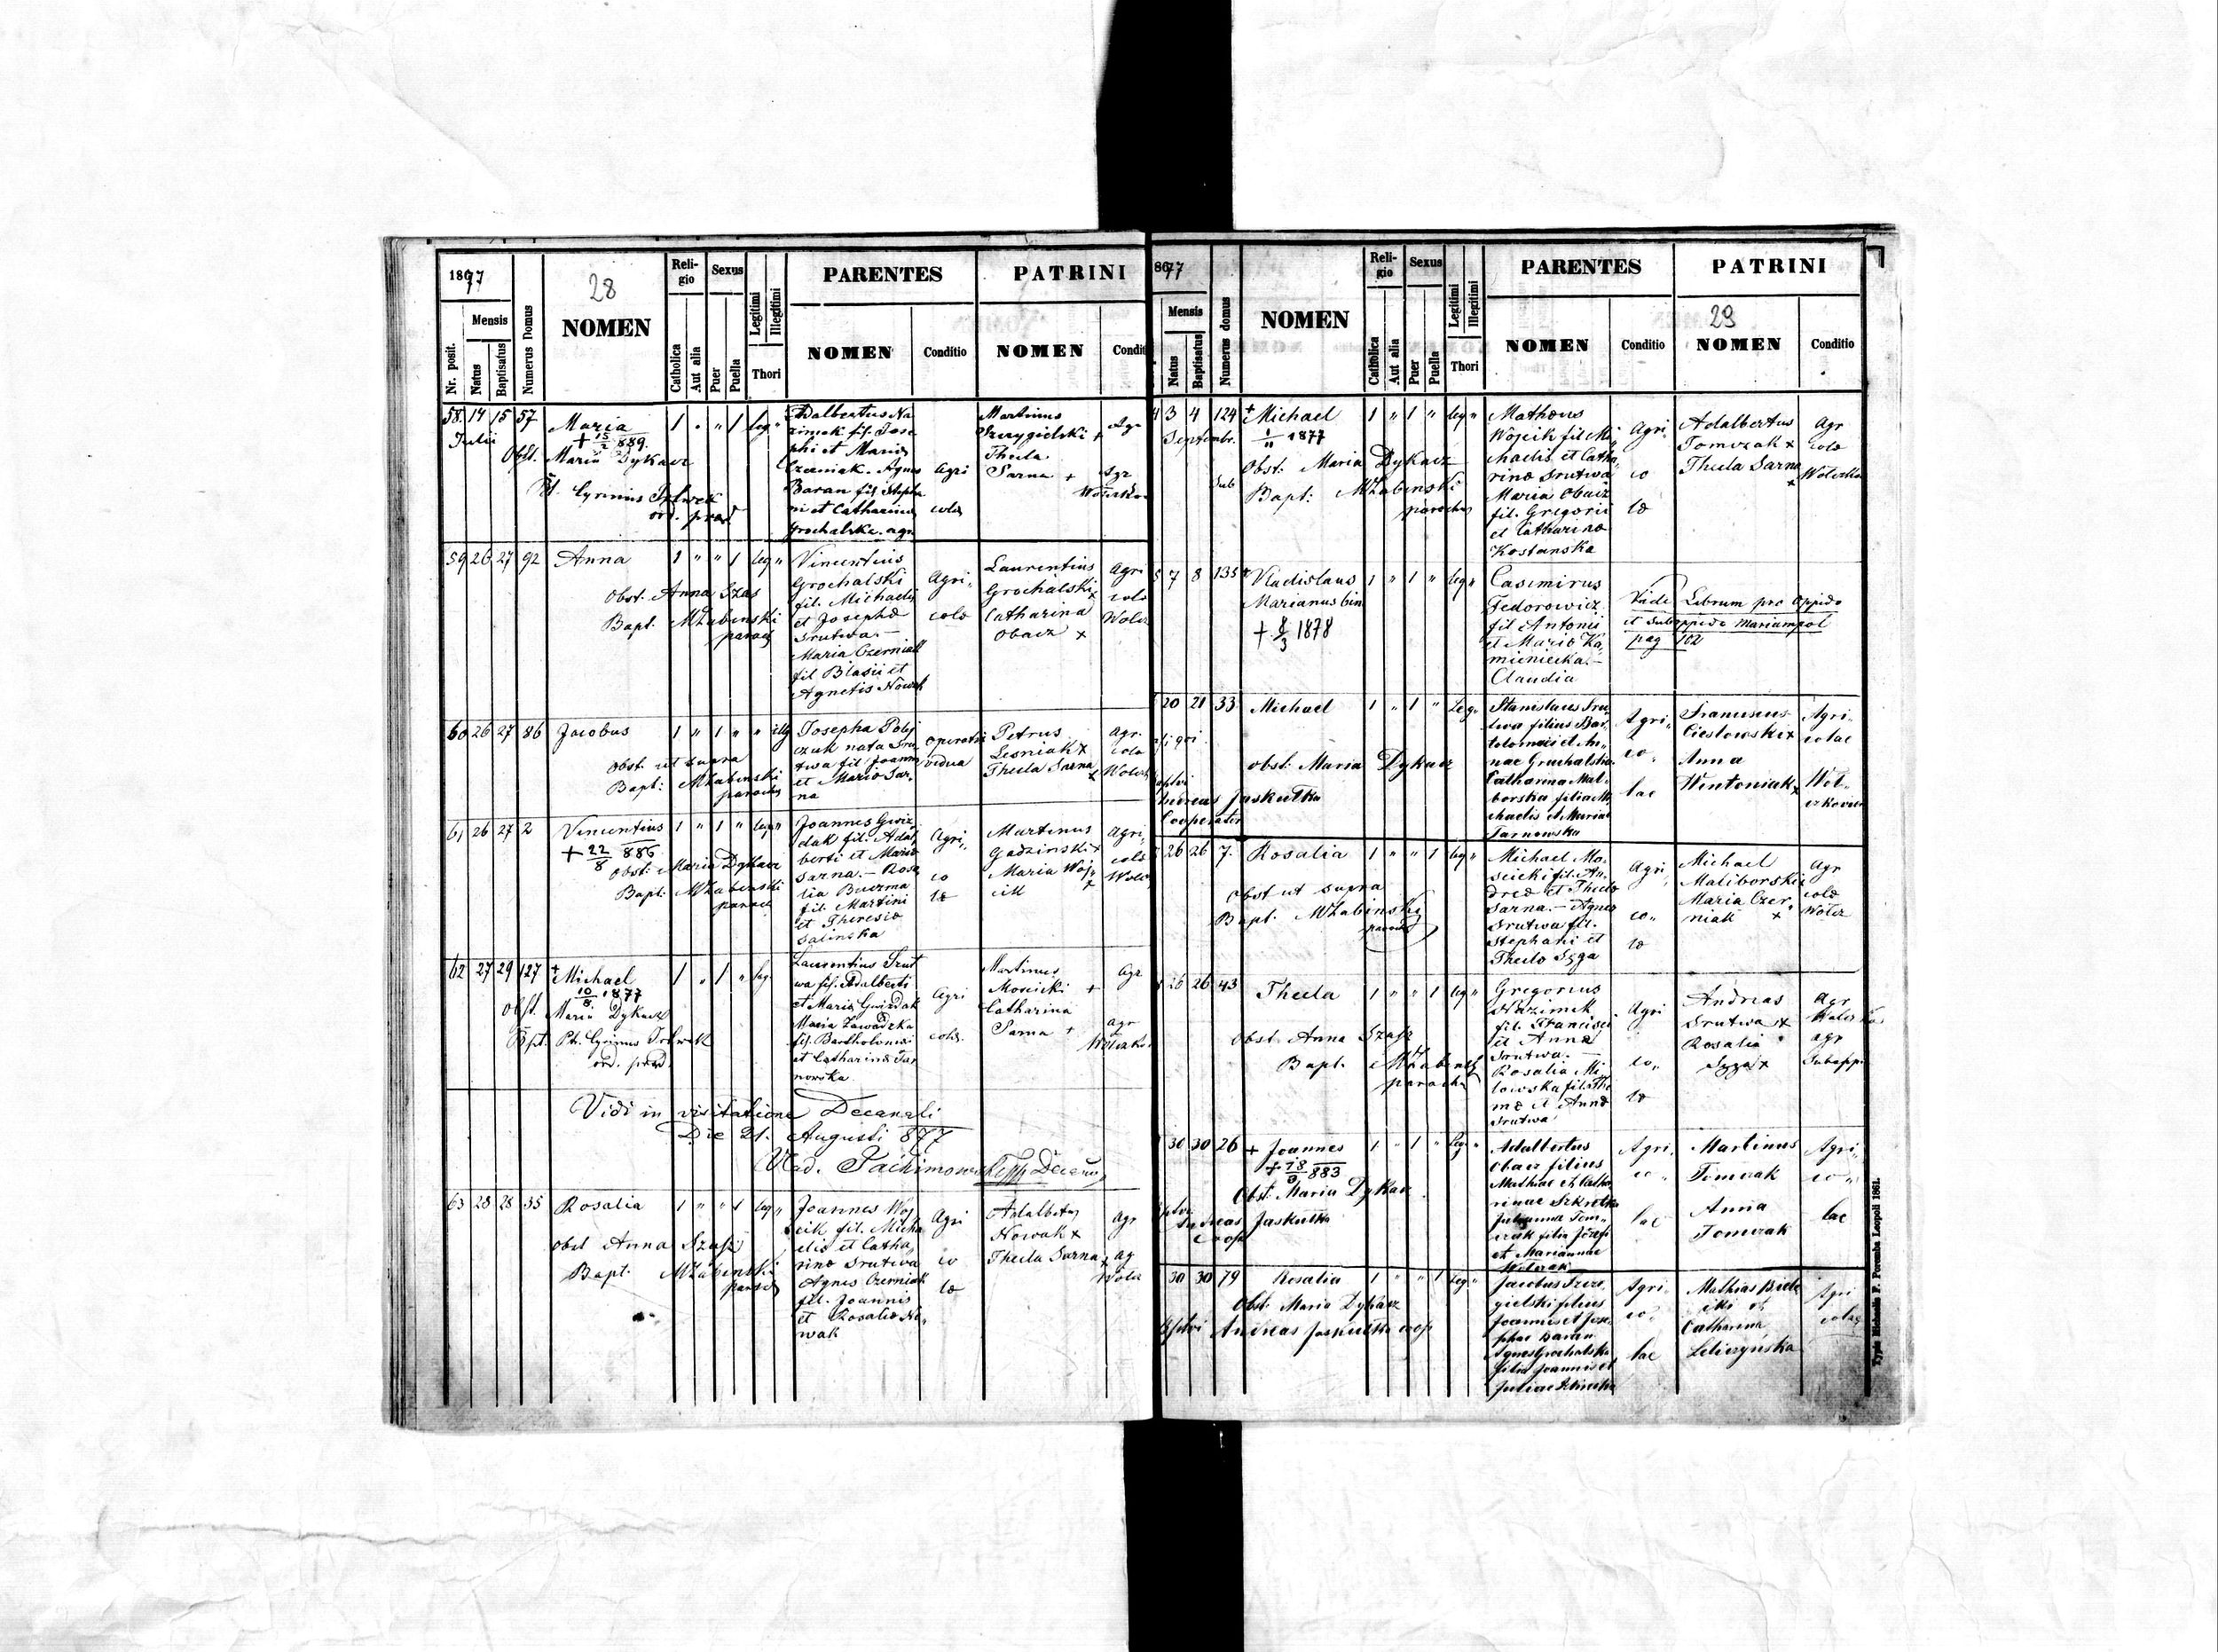 1877
28
Mensis
Nr. posit.
Natus
Baptisatus
Numerus Domus
NOMEN
Reli-
gio
Catholica
Aut alia
Sexus
Puer
Puella
Legitimi
Illegitimi
Thori
PARENTES
NOMEN
Conditio
PATRINI
NOMEN
Condit
58 14 15 57 Maria 1 " " 1 leg "
Julii
+ 15/2 889.
Obst. Maria Dykacz
Bt. Cyrinius
ord. praed.
Adalbertus Na
zimek fil. Jose
phi et Maria
Czerniak. Agnes
Baran fil. Stepha
ni et Catharina
Grochalska. agr.
Agri
colae
Martinus
Szczygielski +
Thecla
Sarna +
Agr
Agr
59 26 27 92 Anna 1 " " 1 leg "
Obst. Anna Szas
Bapt. MŻabinski
paroch
Vincentius
Grochalski
fil. Michaelis
et Josephæ
Srutwa. —
Maria Czerniak
fil Blasii et
Agnetis Nowak
Agri„
colæ
Laurentius
Grochalski x
Catharina
Obacz x
Agri
colæ
Wolcz
60 26 27 86 Jacobus 1 " 1 " " illg
Obst. ut supra
Bapt: MŻabinski
parochus
Josepha Polej
czuk nata Sru
twa fil Joannis
et Mariæ Sar„
na
vidua
Petrus
Lesniak x
Thecla Sarna x
Agr.
colæ
61 26 27 2 Vincentius 1 " 1 " leg "
+ 22/8 886
Obst: Maria Dykacz
Bapt: MŻabinski
paroch
Joannes Gwiz„
dak fil. Adal„
berti et Mariæ
Sarna. — Rosa
lia Buczma
fil. Martini
et Theresiæ
Salinska
Agri„
co
læ
Martinus
Gadzinski x
Maria Woj„
cik
Agri„
colæ
62 27 29 127 + Michael 1 " 1 " leg
10/8 1877
Obst. Maria Dykacz
Bpt. Cyrinus
ord. praed.
Laurentius Srut
wa fil. Adalberti
et Maria Gwizdak
Maria Zawadzka
fil. Bartholomæi
et Catharinæ Tar
nowska.
Agri
colæ.
Martinus
Mosicki +
Catharina
Sarna +
Agr
agr
Vidi in visitatione Decanali
Die 21. Augusti 877
63 28 28 35 Rosalia 1 " " 1 leg "
obst Anna Szasz
Bapt. MŻabinski
paroch
Joannes Woj
cik fil. Micha
elis et Catha„
rinæ Srutwa
Agnes Czerniak
fil. Joannis
et Rosaliæ No„
wak
Agri
co
læ
Adalbertus
Nowak x
Thecla Sarna x
Agr
ag
Wolcz
877
Mensis
Natus
Baptisatus
Numerus domus
NOMEN
Reli-
gio
Catholica
Aut alia
Sexus
Puer
Puella
Legitimi
Illegitimi
Thori
PARENTES
NOMEN
Conditio
PATRINI
29
NOMEN
Conditio
3 4 124 + Michael 1 " 1 " leg "
Septembr.
1/11 1877
Obst. Maria Dykacz
Sub
Bapt: MŻabinski
parochus
Matheus
Wójcik fil Mi„
chaelis et Catha„
rinæ Srutwa
Maria Obacz
fil. Gregorii
et Catharinæ
Kostanska
Agri„
co
læ
Adalbertus
Tomczak x
Thecla Sarna
x
Agr
colæ
7 8 135 Vladislaus 1 " 1 " leg "
Marianus bin
+ 8/3 1878
Casimirus
Fedorowicz
fil Antonii
et Mariæ Ka„
mieniecka. —
Claudia
Vide Librum pro Oppido
et Suboppido Mariampol
pag 102
20 21 33 Michael 1 " 1 " Leg "
obst. Maria Dykacz
Andreas Jaskułka
Cooperator
Stanislaus Sru
twa filius Bar„
tolomaei et An„
nae Grochalska
Catharina Mal„
borska filia Mi
chaelis et Mariae
Tarnowska
Agri„
co„
lae
Franciscus
Cieslowski x
Anna
Wintoniak x
Agri„
colae
26 26 7. Rosalia 1 " " 1 leg "
Obst ut supra
Bapt. MŻabinski
parochus
Michael Mo„
scicki fil. An„
dreæ et Theclæ
Sarna. — Agnes
Srutwa fil.
Stephani et
Theclæ Syga
Agri„
co„
læ
Michael
Maliborski x
Maria Czer„
niak x
Agr
colæ
Wolcz
26 26 43 Thecla 1 " " 1 leg "
Obst Anna Szasz
Bapt. MŻabinski
parochus
Gregorius
Nazimek
fil. Francisci
et Annæ
Srutwa. —
Rosalia Mi„
lowska fil. Tho
mæ et Annæ
Srutwa
Agri
co„
læ
Andreas
Srutwa x
Rosalia
Syga x
Agr
agr
Suboppi
30 30 26 + Joannes 1 " 1 " Leg "
+ 18/9 883
Obst. Maria Dykacz
Andreas Jaskułka
Coop
Adalbertus
Obacz filius
Mathiae et Catha
rinae Szkretka
Julianna Tom„
czak filia Josefi
et Mariannae
Wolczak
Agri„
co„
lae
Martinus
Tomczak
Anna
Tomczak
Agri„
co„
lae
30 30 79 Rosalia 1 " " 1 Leg "
Obst. Maria Dykacz
Andreas Jaskułka coop
Jacobus Szczy
gielski filius
Joannis et Jose
phae Baran
Agnes Grochalska
filia Joannis et
Juliae
Agri„
co„
lae
Mathias
et
Catharina
Agri
colae
Typis Michaelis F. Poremba Leopoli 1861.